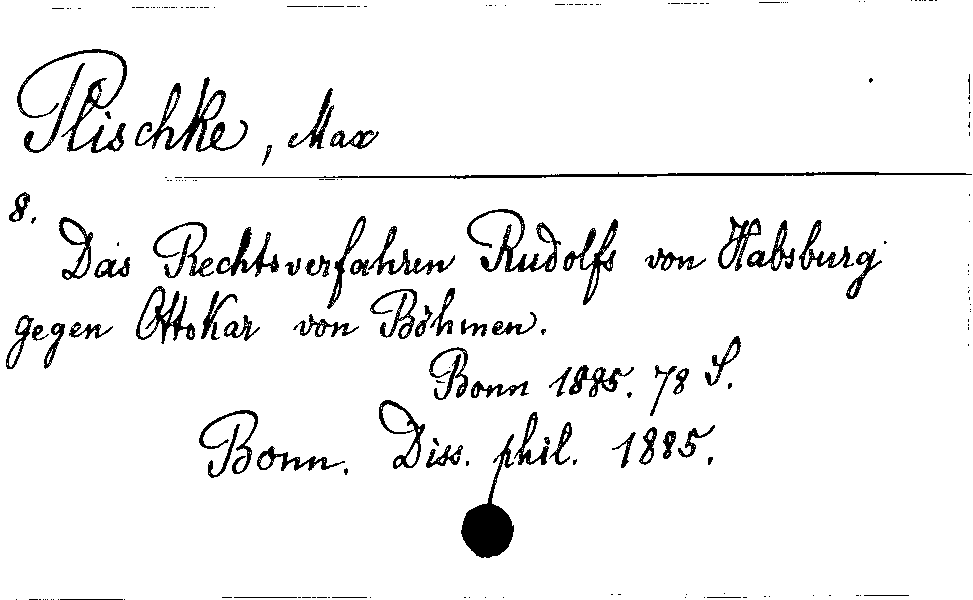 Plischke, Max
8.
Das Rechtsverfahren Rudolfs von Habsburg
gegen Ottokar von Böhmen.
Bonn 1885. 78 S.
Bonn. Diss. phil. 1885.